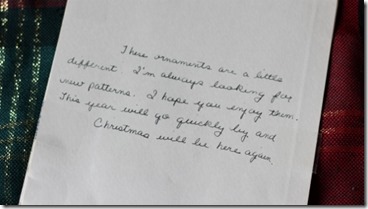 These ornaments are a little
different. I'm always looking for
new patterns. I hope you enjoy them.
This year will go quickly by and
Christmas will be here again.